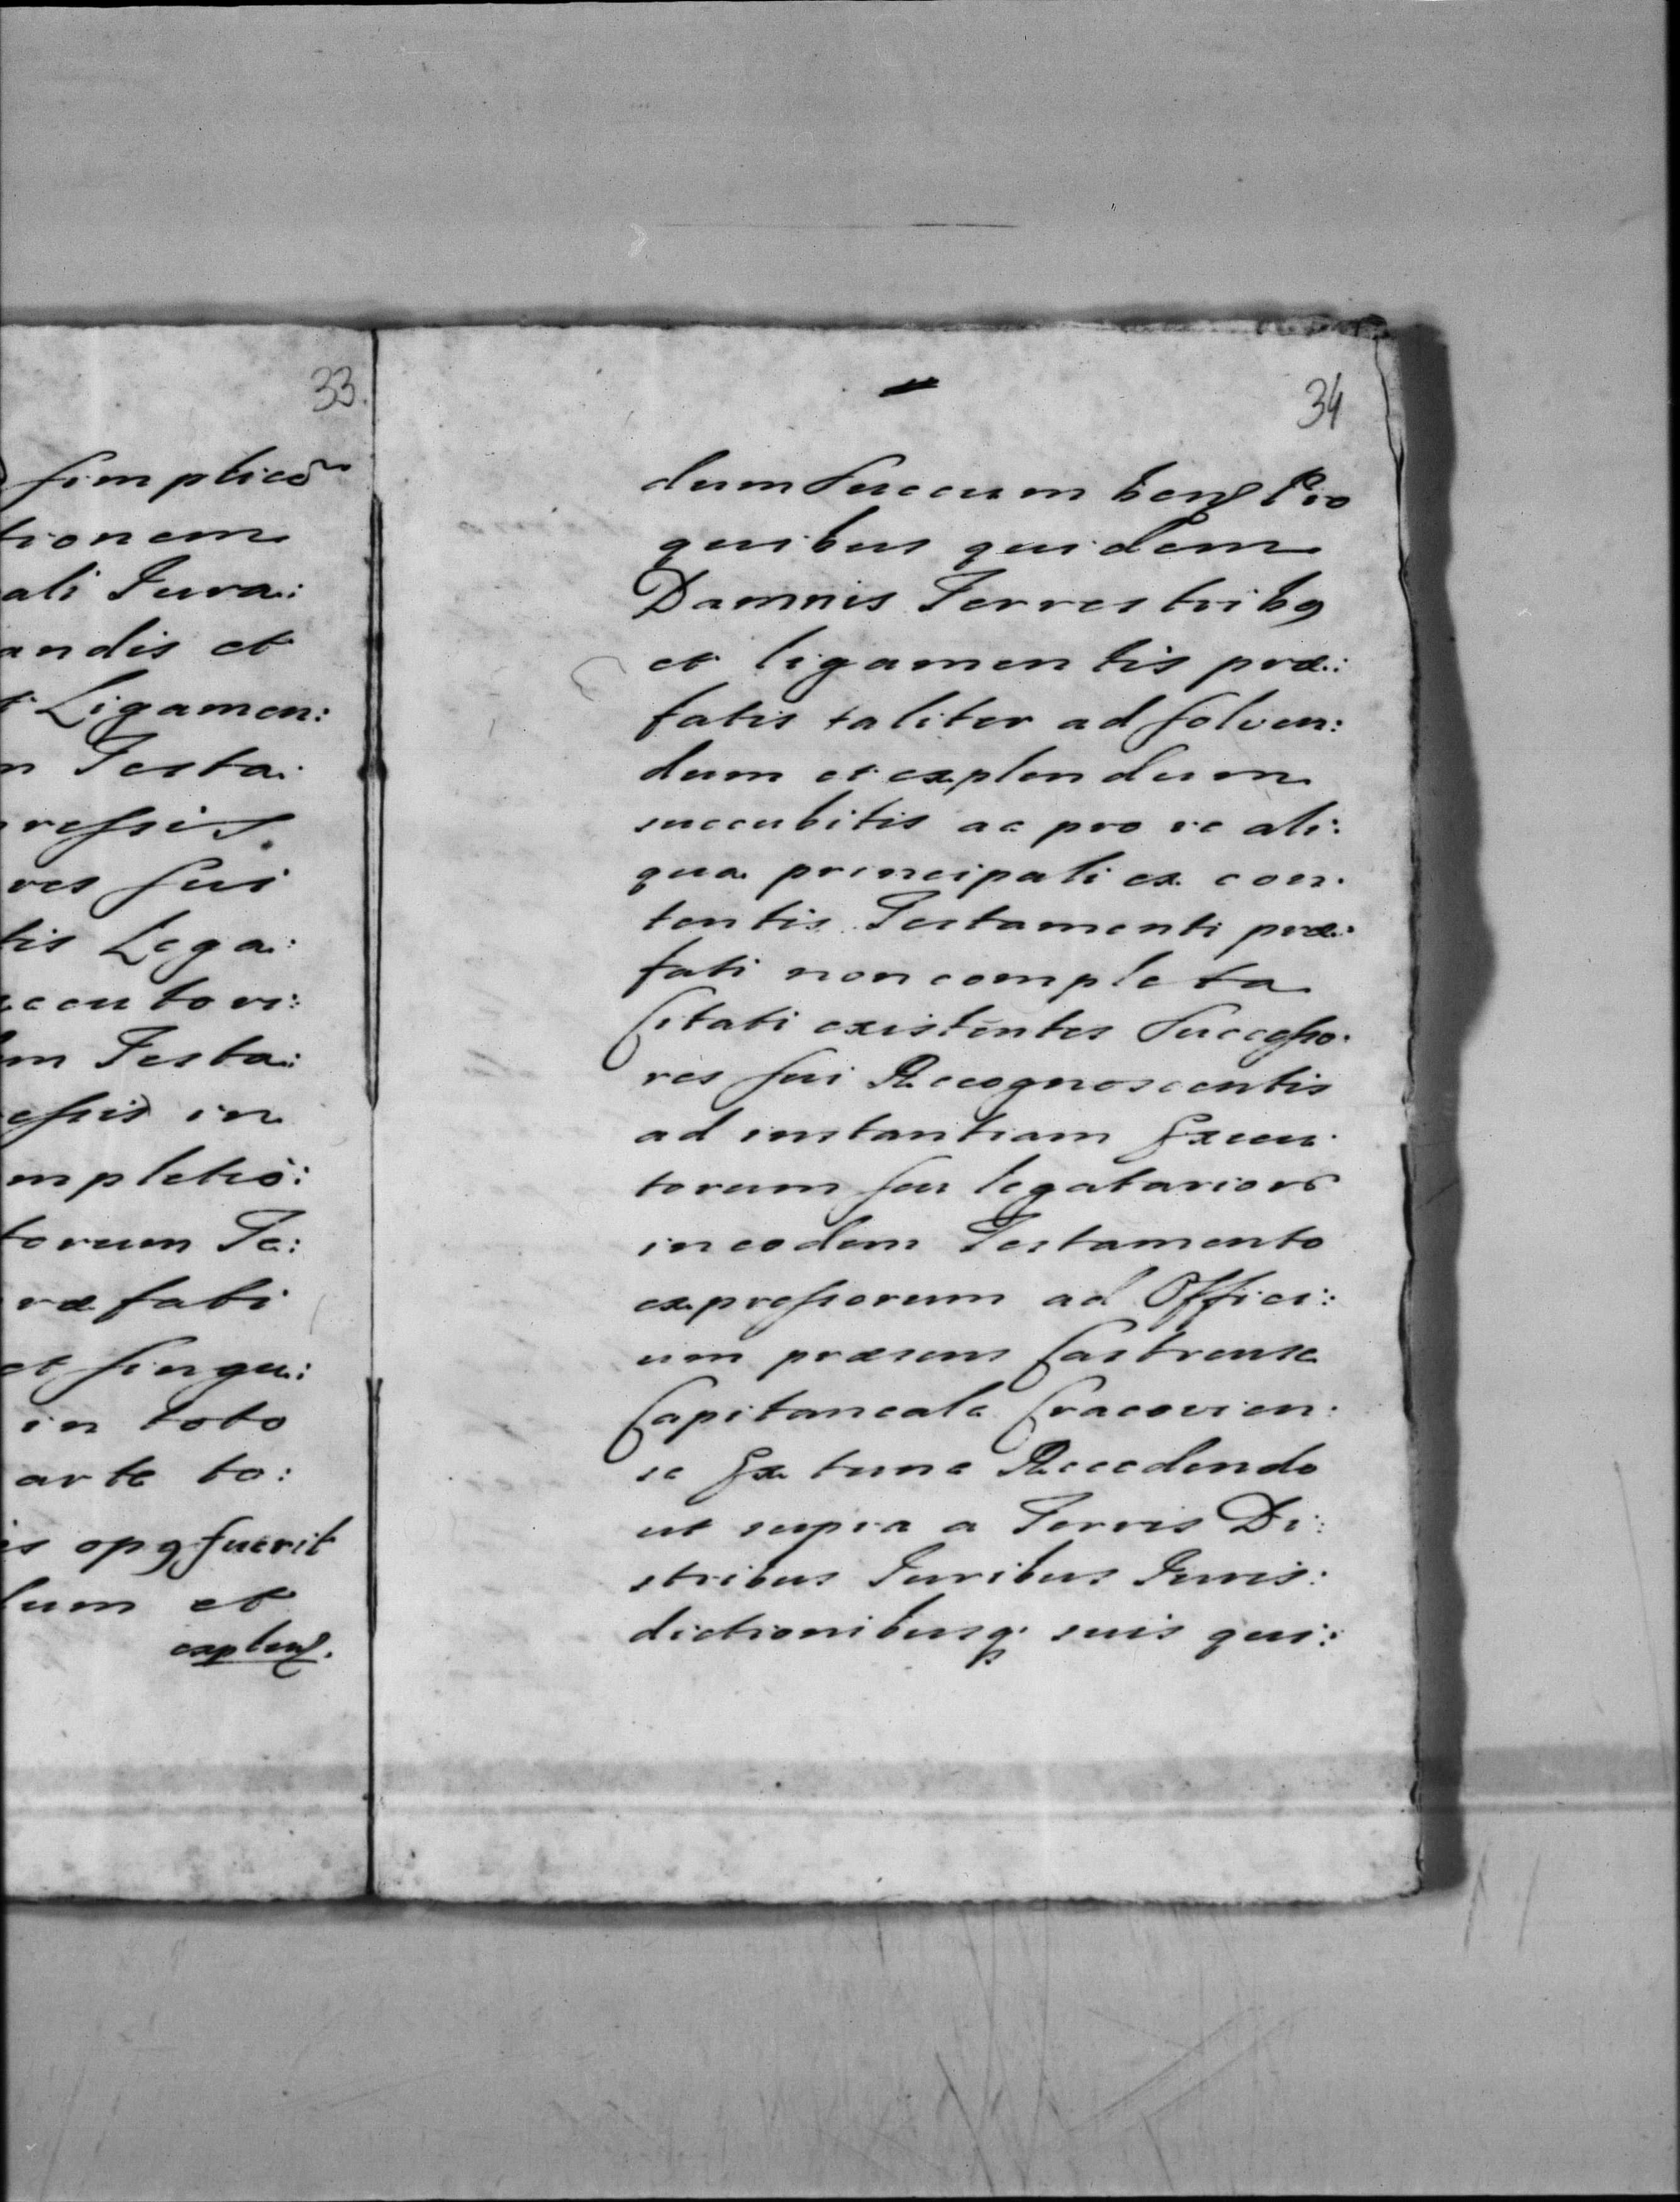 33.
simplicem
tionem
ali Iura:
andis et
Ligamen:
n Testa:
ressis
res sui
tis Lega:
ecutori:
m Testa:
essis in
mpletio:
torum Te:
ræfati
et singu:
in toto
arte to:
is opus fuerit
dum et
explen.
34
dum Succumben Pro
quibus quidem
Damnis Terrestribus
et ligamentis præ:
fatis taliter ad solven:
dum et explendum
succubitis ac pro re ali:
qua principali ex con:
tentis Testamenti præ:
fati non completa
Citati existentes Successo:
res sui Recognoscentis
ad instantiam Execu:
torum seu legatariorum
in eodem Testamento
expressorum ad Offici:
um præsens Castrense
Capitaneale Cracovien:
se Ex tunc Recedendo
ut supra a Terris Di:
strictibus Iuribus Iuris:
dictionibusq. suis qui: